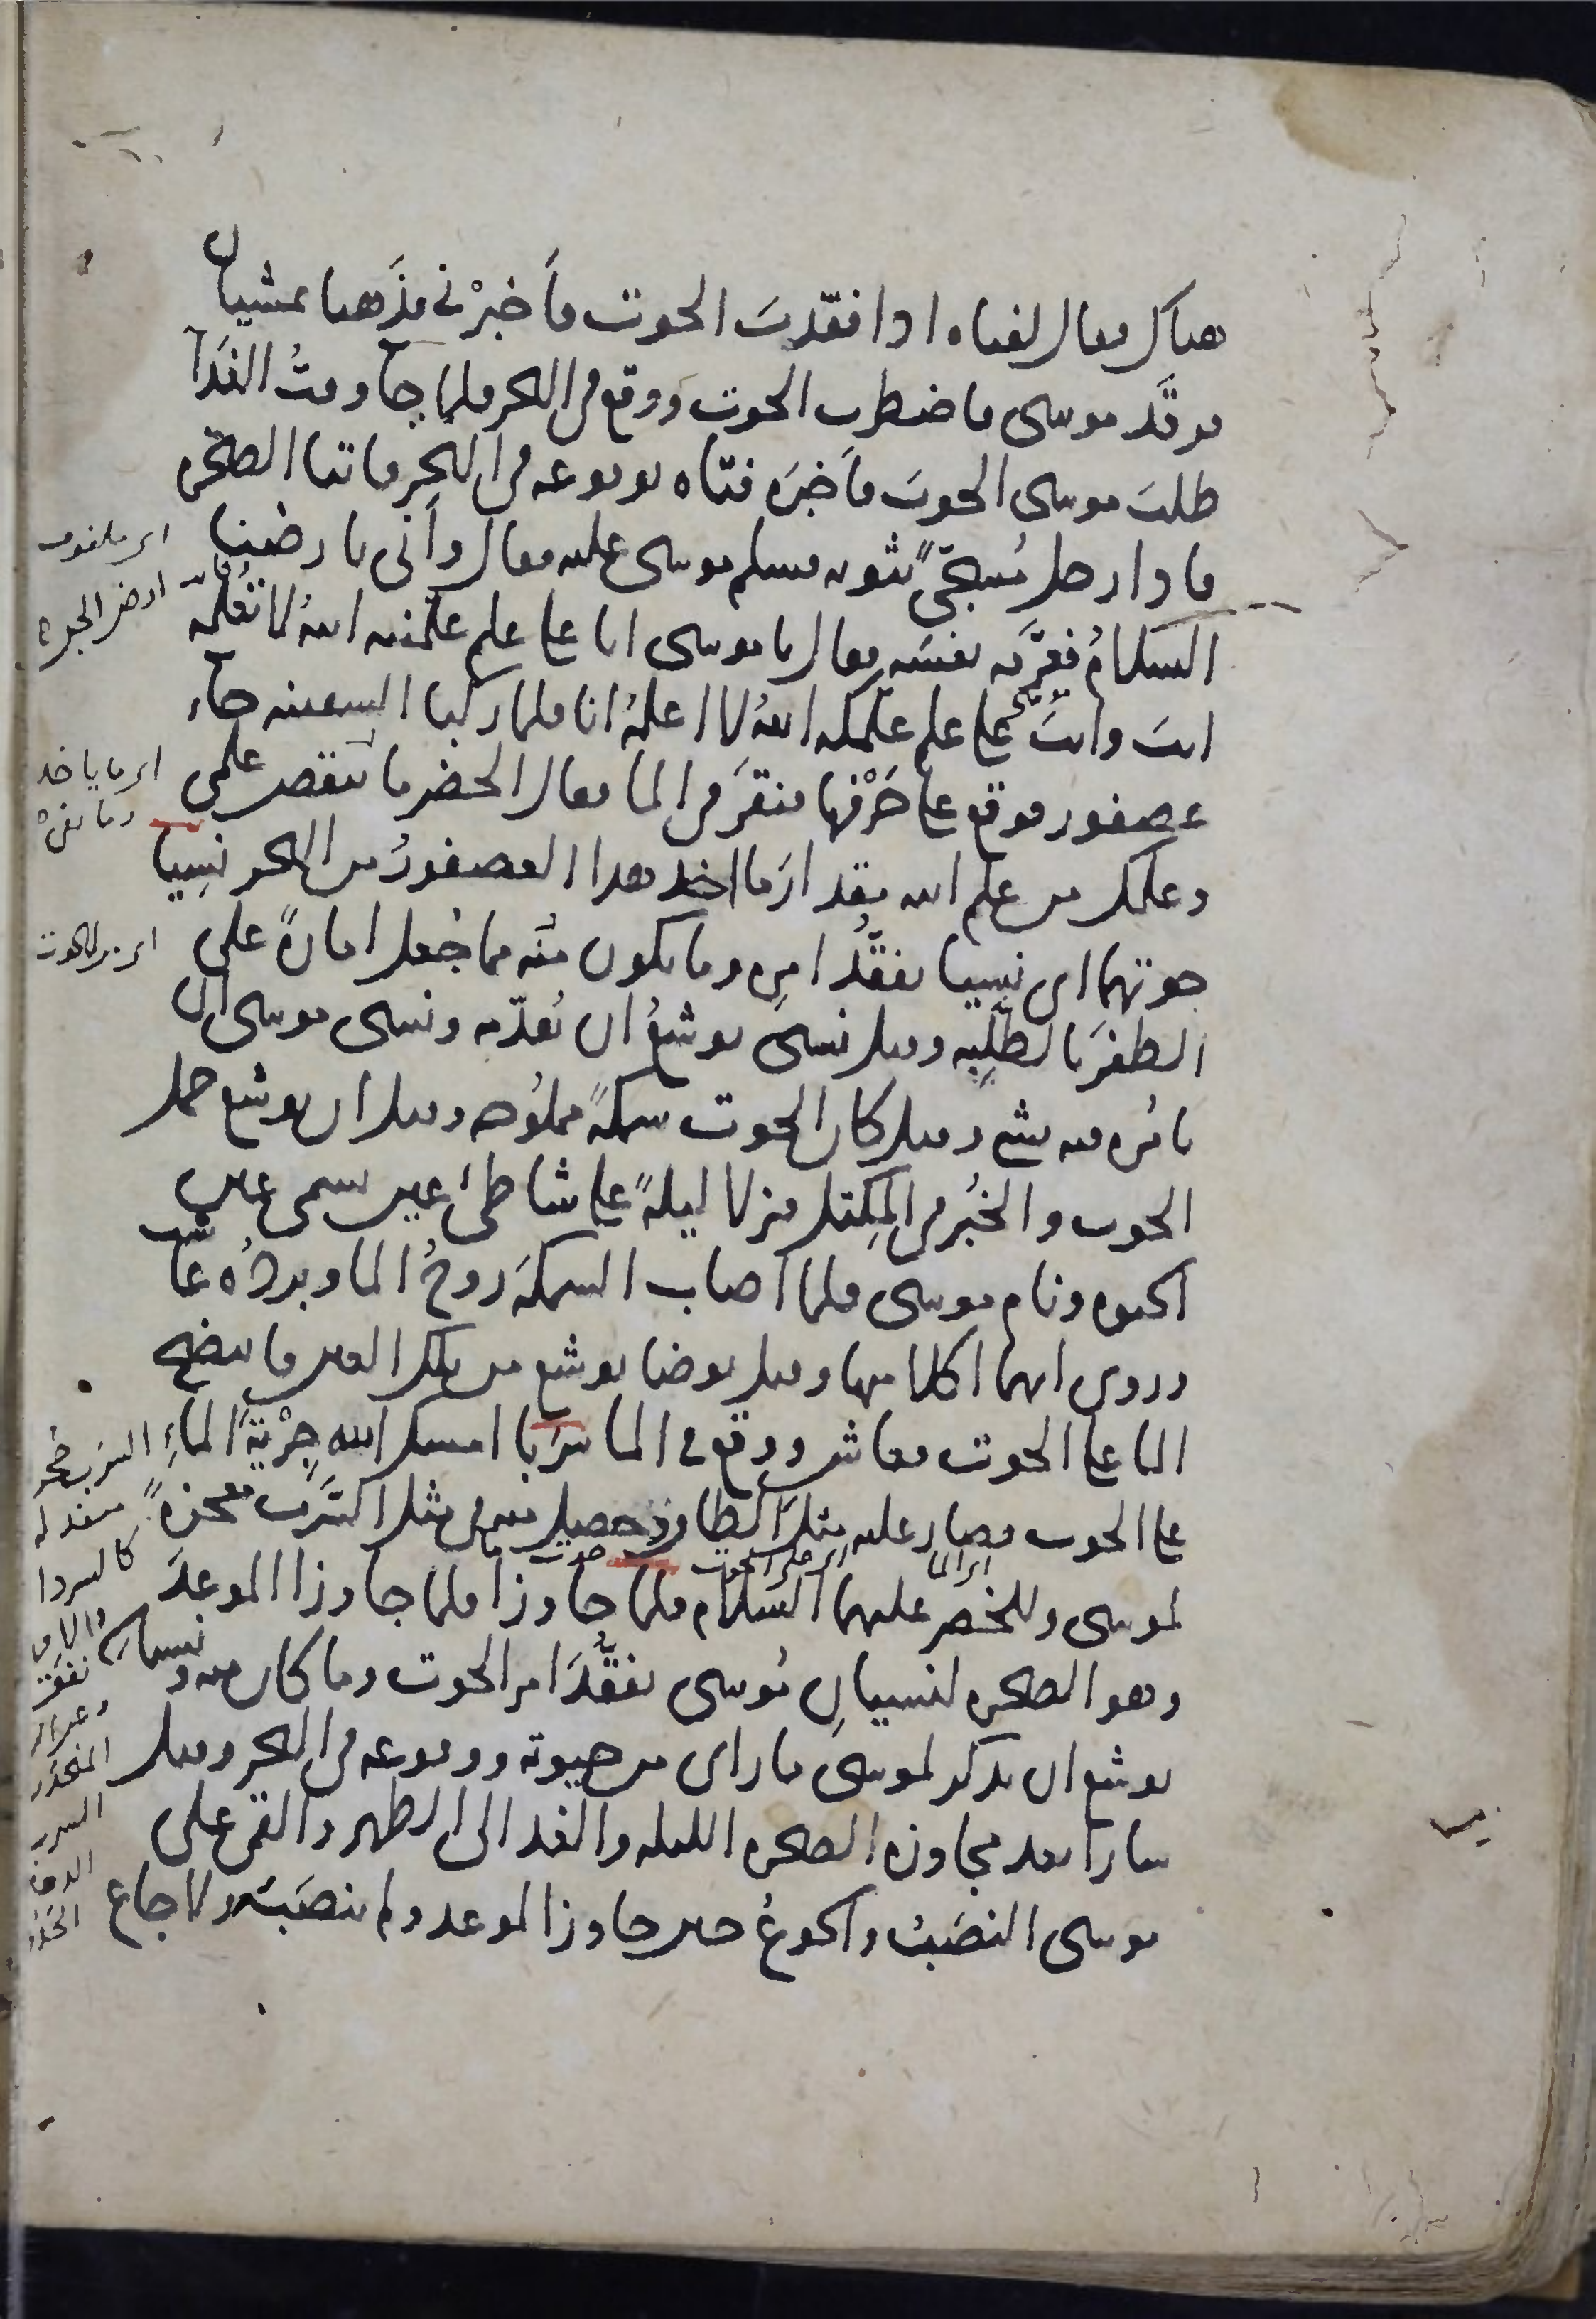 هناك فقال لفتاه اذا فقدت الحوت فأخبرني فذهبا يمشيان
فرقد موسى فاضطرب الحوت ووقع في البحر فلما جآ وقت الغدآ
طلب موسى الحوت فأخبره فتاه بوقوعه في البحر فاتيا الصخرة
فاذا رجل مسجّى بثوبه فسلم موسى عليه فقال وأنى بارضنا
السلام فعرّفه نفسه فقال يا موسى انا على علم علمنيه الله لا تعلمه
انت وانت على علم علمكه الله لا اعلمه انا فلما ركبا السفينه جاء
عصفور فوقع على حرفها فنقر في الما فقال الخضر ما ينقص علمي
وعلمك من علم الله مقدار ما اخذ هذا العصفور من البحر نسيا
حوتهما اى نسيا تفقّد امره وما يكون منه مما جعل امارة على
الظفر بالطلبه وقيل نسى يوشع ان يقدّمه ونسى موسى ان
يأمره فيه بشي وقيل كان الحوت سمكة مملوحه وقيل ان يوشع حمل
الحوت والخبز في المكتل فنزلا ليلة على شاطئ عين تسمى عين
الحيوه ونام موسى فلما اصاب السمكة روح الما وبرده عاشت
وروى انهما اكلا منها وقيل توضا يوشع من تلك العين فانتضح
الما على الحوت فعاش ووقع في الما سربا امسك الله جرية الماء
على الحوت فصار عليه مثل الطاق وحصل منه في مثل السرب معجزة
لموسى وللخضر عليهما السلام فلما جاوزا فلما جاوزا الموعد
وهو الصخره لنسيان موسى تفقّد امر الحوت وما كان منه ونسيان
يوشع ان يذكر لموسى ما راى من حيوته ووقوعه في البحر وقيل
سارا بعد مجاوزة الصخره الليله والغد الى الظهر والقى على
موسى النصب والجوع حين جاوز الموعد ولم ينصب ولا جاع
ارض الجره
اى ما ياخذ